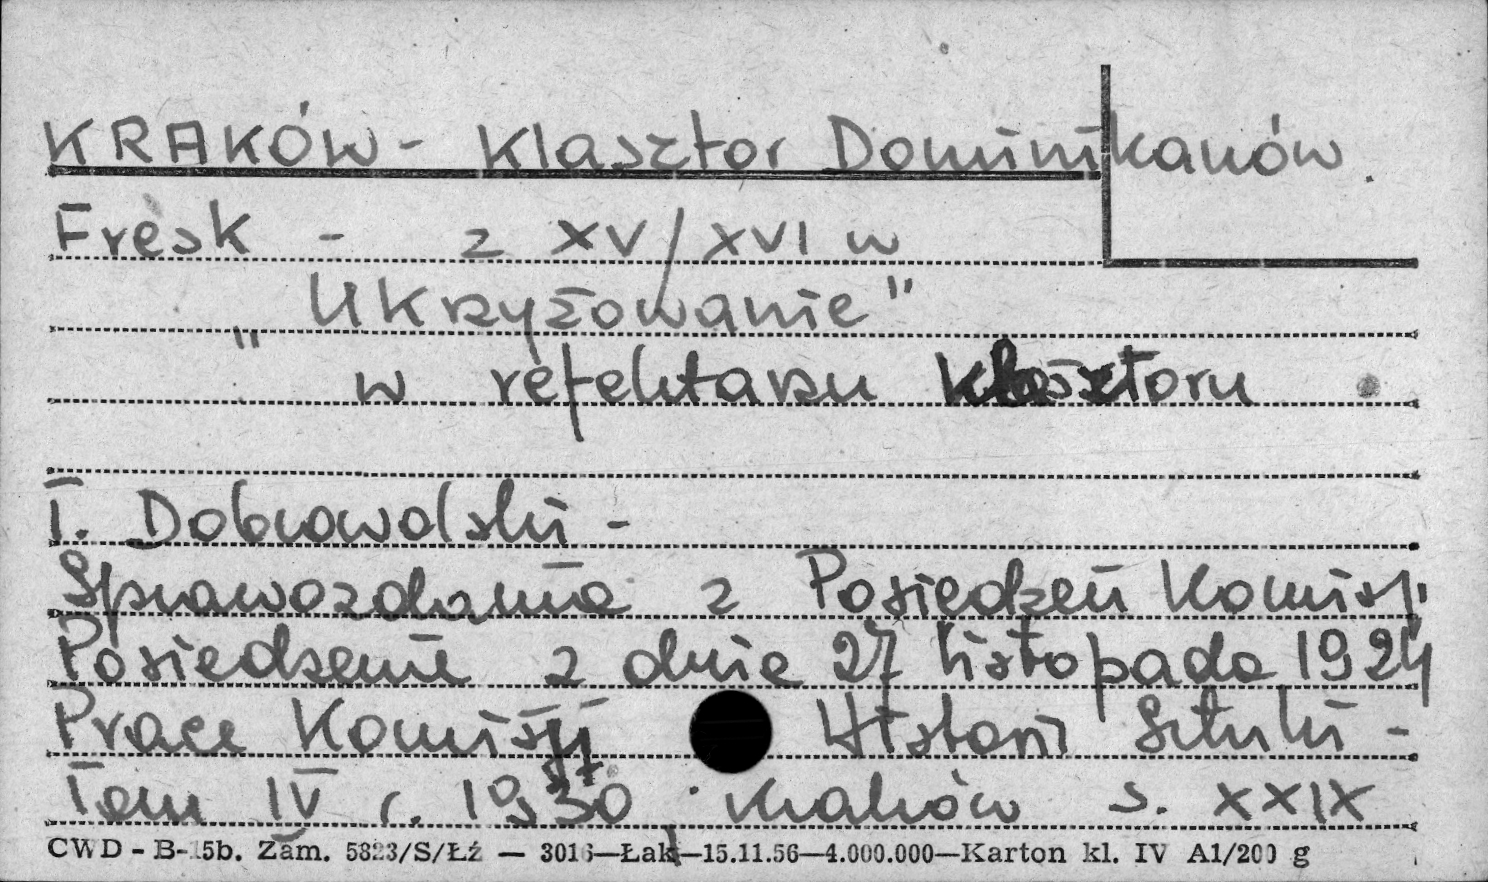 KRAKÓW - Klasztor Dominikanów.
Fresk - z XV/XVI w
"Ukrzyżowanie"
w refektarzu klasztoru
T. Dobrowolski -
Sprawozdania z Posiedzeń Komisji
Posiedzenie z dnia 27 listopada 1924
Prace Komisji Historii Sztuki -
Tom IV r. 1930 Kraków s. XXIX
CWD - B-15b. Zam. 5823/S/Łź — 3016—Łak—15.11.56—4.000.000—Karton kl. IV A1/200 g